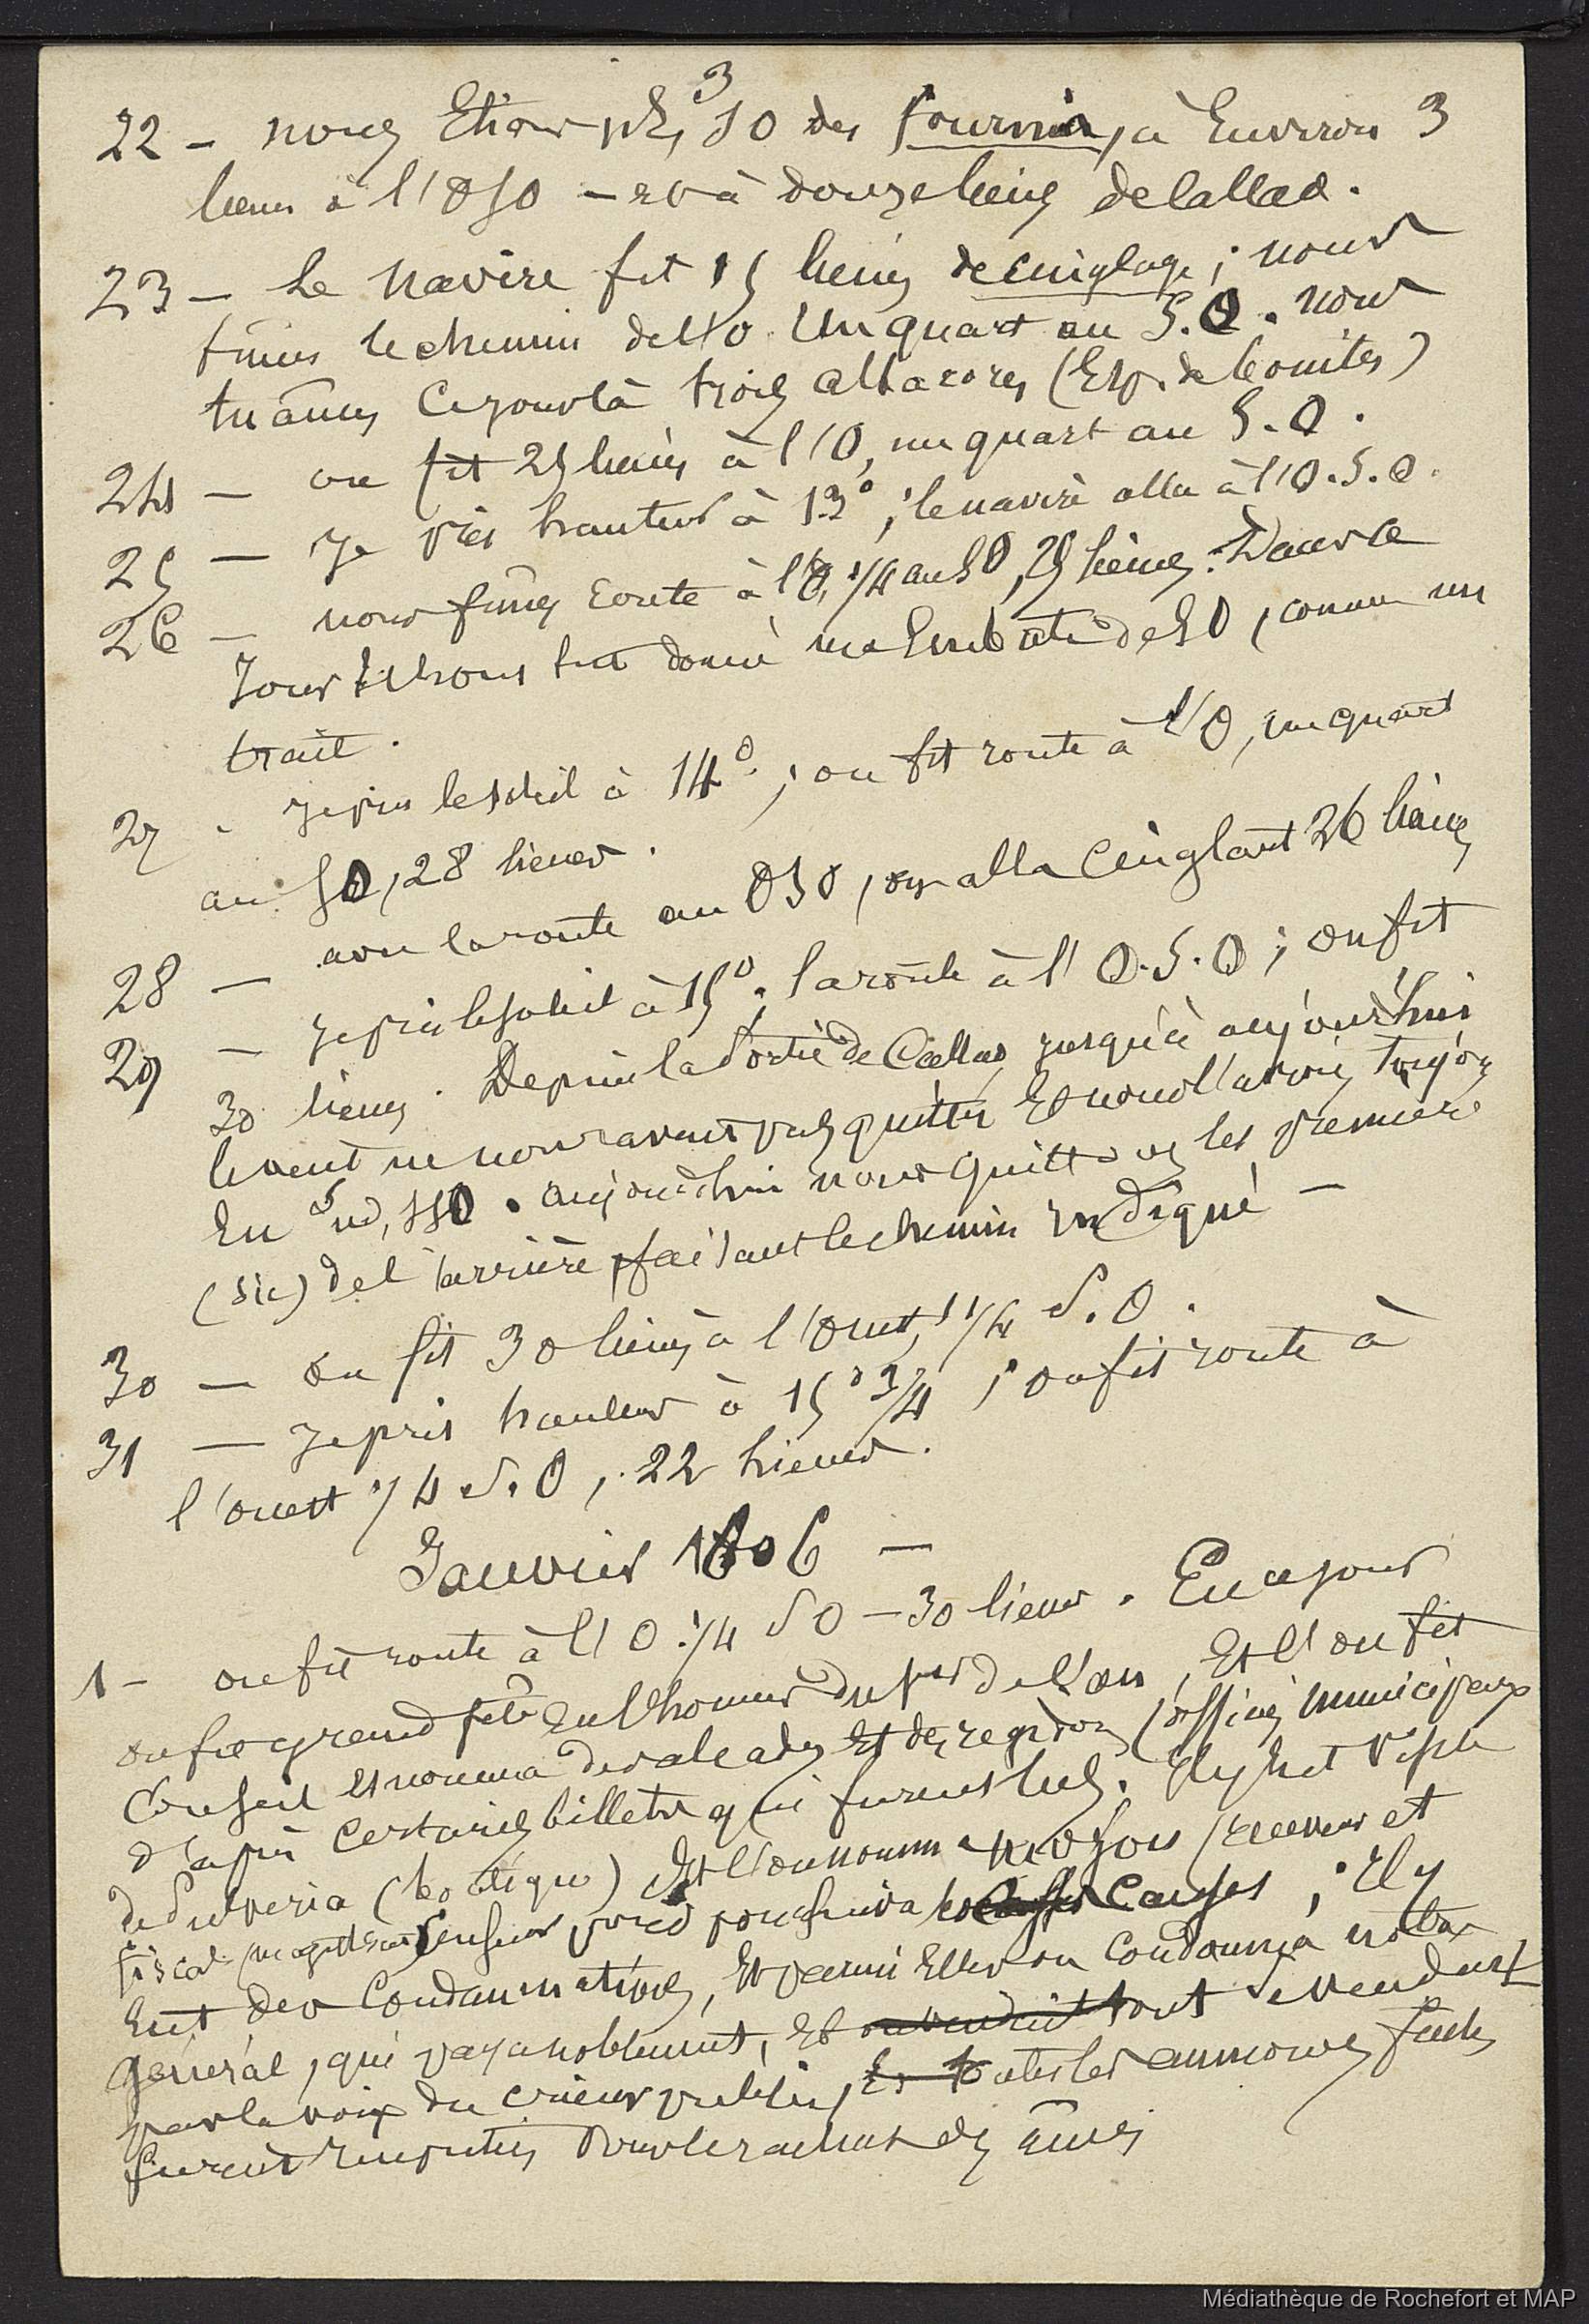 22 — nous étions
3
SO des fourmis, à environ 3
lieues à l'OSO — et à douze lieues de Callao.
23 — Le navire fit 15 lieues de cinglage ; nous
fîmes le chemin de l'O. un quart au S.O. nous
tuâmes ce jour là trois albacores (Esp. de bonites)
24 — on fit 25 lieues à l'O, un quart au S.O.
25 — Je pris hauteur à 13°, le navire alla à l'O.S.O.
26 — nous fîmes route à l'O, 1/4 au SO, 25 lieues. Dans ce
jour donné de SO, comme un
trait.
27 - Je pris le soleil à 14°, ; on fit route à l'O, un quart
au SO, 28 lieues.
28 — avec la route au OSO, on alla cinglant 26 lieues
29 — Je pris le soleil à 15° ; la route à l'O.S.O ; on fit
30 lieues. Depuis la sortie de Callao, jusqu'à aujourd'hui
le vent ne nous avait pas quittés et nous l'avions toujours
En Sud, SSO. aujourd'hui nous quittons les première
(sic) de l'arrière, faisant le chemin indiqué —
30 — on fit 30 lieues à l'ouest, 1/4 S.O.
31 — Je pris hauteur à 15° 3/4 ; on fit route à
l'ouest 1/4 S.O, 22 lieues.
Janvier 1606 —
1 — on fit route à l'O 1/4 SO — 30 lieues. En ce jour
on fit grand fête en l'honneur du 1er de l'an, Et l'on fit
Conseil et nomma des alcades et des regidors (officiers municipaux
d'après certains billets qui furent lus. Il y eut
de pulperia (boutique) et l'on nomma receveur et
fiscal pour poursuivre les causes ; Il y
eut des condamnations, et parmi elles on condamna notre
général, qui paya noblement, et on vendait tout se vendant
par la voix du crieur public, Et toutes les aumônes faites
furent réputées pour le rachat des âmes
Médiathèque de Rochefort et MAP